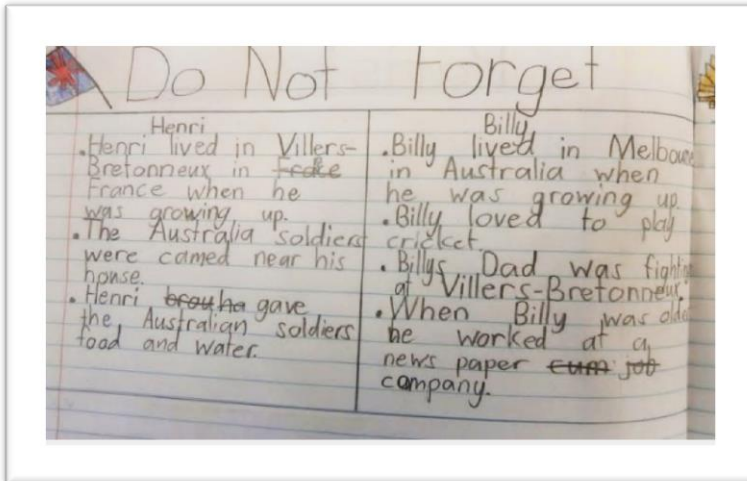 Do Not Forget
Henri
. Henri lived in Villers-
Bretonneux in
France when he
was growing up.
. The Australia soldiers
were camed near his
house.
. Henri gave
the Australian soldiers
food and water.
Billy
. Billy lived in Melboune
in Australia when
he was growing up.
. Billy loved to play
cricket.
. Billys Dad was fighti
at Villers-Bretonneux.
. When Billy was olde
he worked at a
news paper cum job
company.